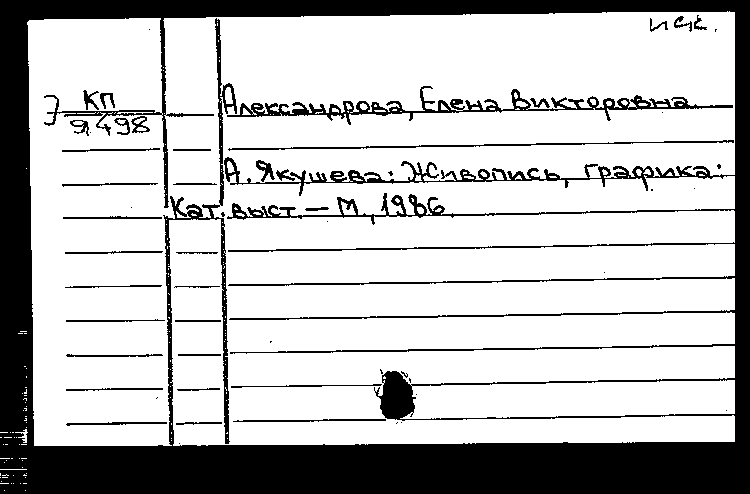 иск.
Э КП
Я498
Александрова, Елена Викторовна
А. Якушева: Живопись, графика:
Кат. выст. — М., 1986.